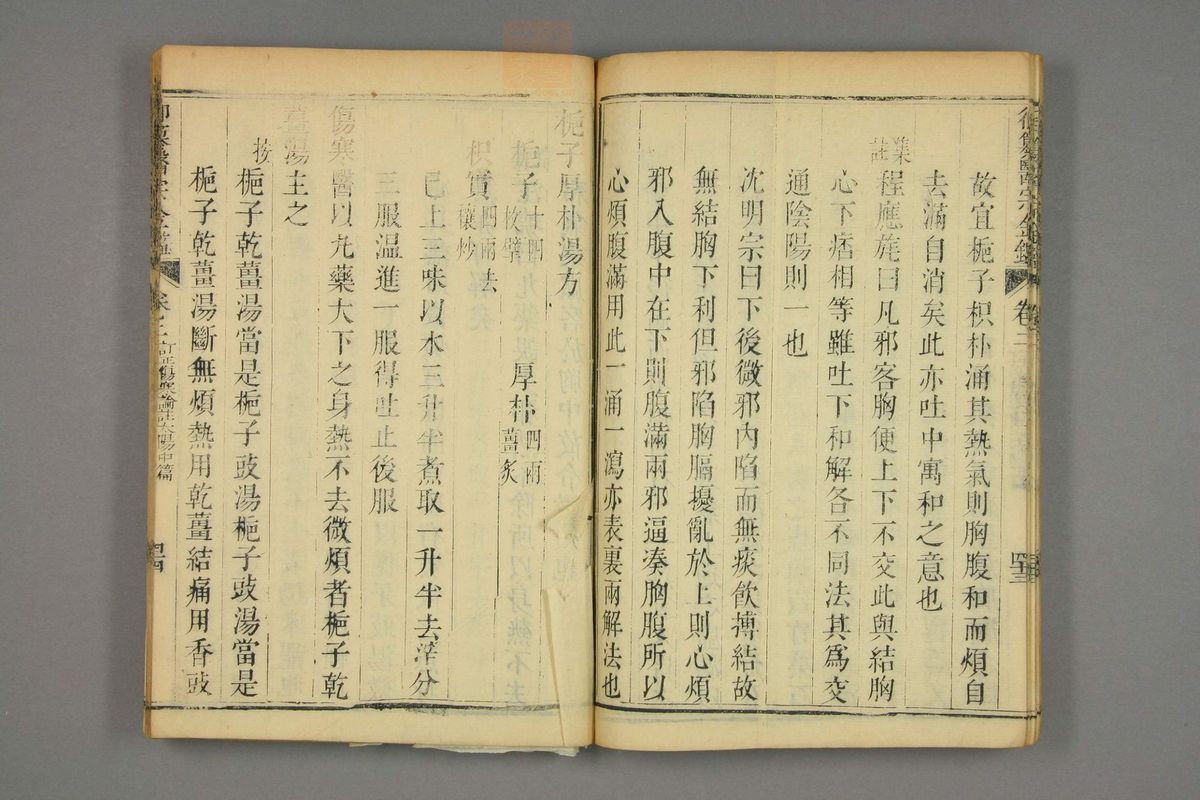 故宜梔子枳朴涌其熱氣則胸腹和而煩自
去滿自消矣此亦吐中寓和之意也
集註
程應旄曰凡邪客胸便上下不交此與結胸
心下痞相等雖吐下和解各不同法其爲交
通陰陽則一也
沈明宗曰下後微邪內陷而無痰飮搏結故
無結胸下利但邪陷胸膈擾亂於上則心煩
邪入腹中在下則腹滿兩邪逼湊胸腹所以
心煩腹滿用此一涌一瀉亦表裏兩解法也
梔子厚朴湯方
梔子十四枚擘 厚朴四兩薑炙
枳實四兩去穰炒
已上三味以水三升半煮取一升半去滓分
三服溫進一服得吐止後服
傷寒醫以丸藥大下之身熱不去微煩者梔子乾
薑湯主之
按
梔子乾薑湯當是梔子豉湯梔子豉湯當是
梔子乾薑湯斷無煩熱用乾薑結痛用香豉
御纂醫宗金鑑
卷二
訂正傷寒論註太陽中篇